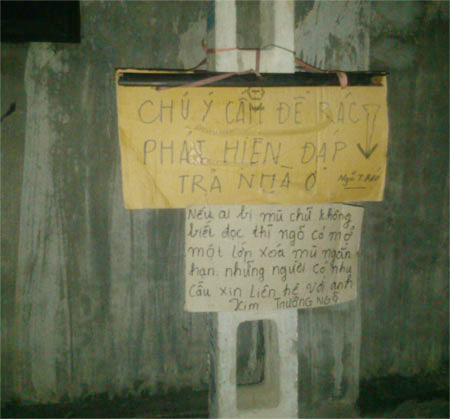 CHÚ Ý CẤM ĐỂ RÁC
PHÁT HIỆN ĐÁP
TRẢ NHÀ Ở
Nếu ai bị mù chữ không
biết đọc thì ngõ có mở
một lớp xoá mù ngắn
hạn. những người có nhu
cầu xin liên hệ với anh
Kim TRƯỞNG NGÕ